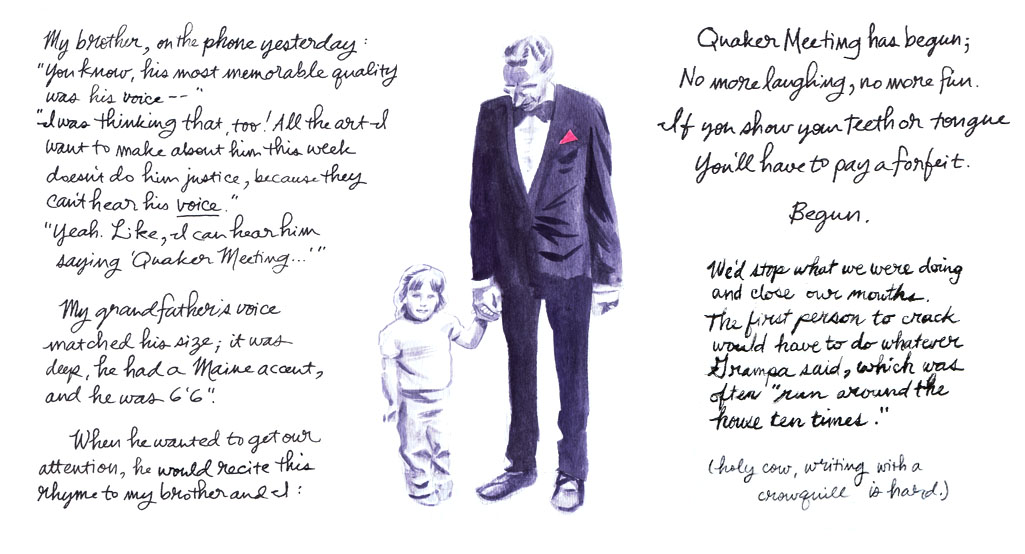 My brother, on the phone yesterday:
"You know, his most memorable quality
was his voice--"
"I was thinking that, too! All the art I
want to make about him this week
doesn't do him justice, because they
can't hear his voice."
"Yeah. Like, I can hear him
saying 'Quaker Meeting...'"
My grandfather's voice
matched his size; it was
deep, he had a Maine accent,
and he was 6'6".
When he wanted to get our
attention, he would recite this
rhyme to my brother and I:
Quaker Meeting has begun;
No more laughing, no more fun.
If you show your teeth or tongue
You'll have to pay a forfeit.
Begun.
We'd stop what we were doing
and close our mouths.
The first person to crack
would have to do whatever
Grampa said, which was
often "run around the
house ten times."
(holy cow, writing with a
crowquill is hard.)